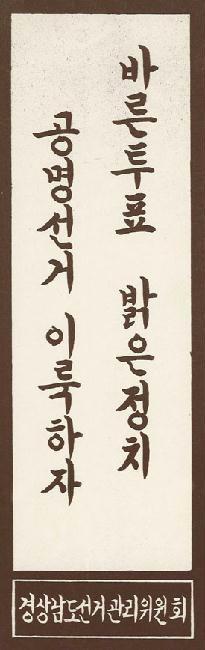 바른투표 밝은정치
공명선거 이룩하자
경상남도선거관리위원회